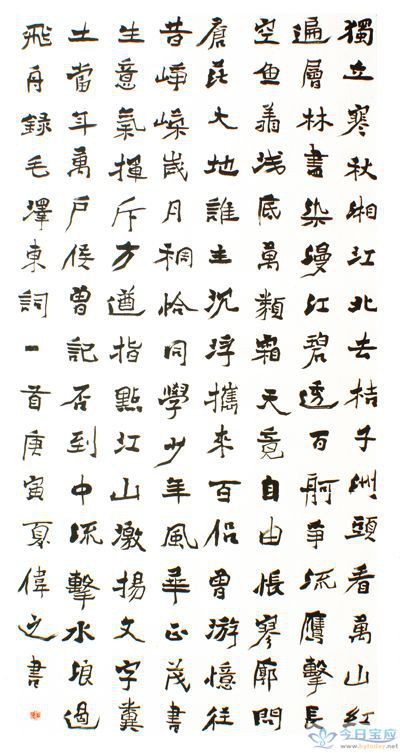 獨立寒秋湘江北去桔子洲頭看萬山紅
遍層林盡染漫江碧透百舸爭流鷹擊長
空魚翔浅底萬類霜天竟自由悵寥廓問
蒼茫大地誰主沉浮攜來百侶曾游憶往
昔崢嶸歲月稠恰同學少年風華正茂書
生意氣揮斥方遒指點江山激揚文字糞
土當年萬戶侯曾記否到中流擊水浪遏
飛舟録毛澤東詞一首庚寅夏偉之書
今日宝应